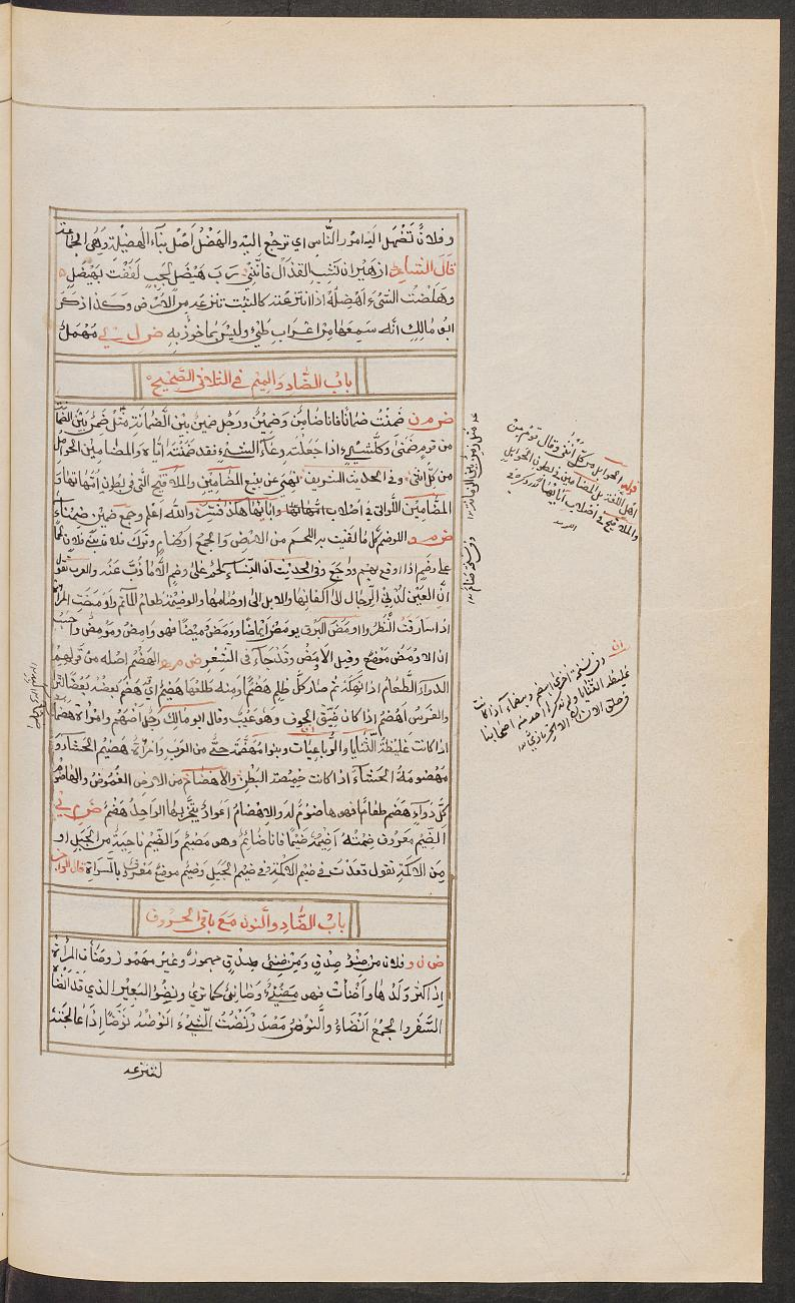 وفلانٌ تَضْهَل اليه امور النّاس اي ترجع اليه والهَضْلُ اَصْل بنآء الهَضِيْلة وَهْىَ الجَماعة
قالَ الشاعر ازهَيْر ان يَشِب القَذال فاِنَّنِي رُبَ هَيْضَلٍ لَجِبٍ لَفَفْت بِهَيْضَلِ
وهَلَضْت الشيْءَ اَهْلِضُهُ اذا انتزعته كالنبت تنزعه من الارض وكذا ذكر
ابو مالك انّه سَمِعها من اعراب طيّ وليس بماخوذ به ض ل ي مهمل
باب الضّاد والميم في الثلاثي الصّحيح
ض م ن ضَمِنْت ضمانًا فانا ضامن وضَمِيْن ورجل ضَمِن بيّن الضّمانة مثل ضَمِن بيّن الضمان
من قوم ضَمْنَى وكلّ شيء اذا جَعلته وعآء لشيء فقد ضَمّنته اياه والمضامين الحوامل
من كلّ انثى وفي الحديث الشريف نهى عن بيع المضامين والملاقيح التي في بطون امّهاتها و
المضَامين اللّواتي في اصْلاب ابآئها هكذا فُسّر والله اعلم وجمع ضَمِين ضُمَناء
ض م و الوضم كلّ ما القيت عليه اللحم من الارض والجمع اوضام وتَرك فلان بني فلان لحمًا
على وضم اذا اوقع بهم ووجع وفي الحديث ان النساء لحم على وضم الّا ما ذُبّ عنه والعرب تقول
انّ العَيْن تُدْني الرِّجال الى اكفانها والابل الى اوضامها والوضيمة طعام المأتم وأومضت المرأة
اذا سارقت النَّظر واومَضَ البَرْق يومض ايماضًا وومَضَ وميضًا فهو وامض ومُومض واحسب
ان الاومض موضع وقيل الأَمِض وقد جآء في الشعر ض م ه الهضم اصله من قولهم
الدوآء الطعام اذا نهكه ثم صار كلّ ظلم هَضْمًا ومنه طلعها هَضِيْمٌ اي هَضم بعضه بعضا
والفرس اَهْضَم اذا كان ضيّق الجوف وهو عَيْب وقال ابو مالك رجل اهضم وامرأة هضمآء
اذا كانت غليظة الثّنايا والرّباعيات وبنوا مُهَضّمة حيّ من العرب وامرأة هضيم الحشا و
مهضومة الحشاء اذا كانت خميصة البطن والاهضام من الارض الغُموض والهاضوم
كلّ دوآء هضم طعامًا فهو هاضوم له والاهضام اعواد يتبخّر بها الواحد هضم ض م ي
الضيم معروف ضِمْتُه اَضِيْمُهُ ضَيْمًا فانا ضائم وهو مَضِيْم والضيم ناحية من الجبل او
من الاكمة تقول قعدت في ضيم الاكمة وفي ضيم الجبل وضيم موضع معروف بالسراة
بابُ الضّاد والنون مَع باقي الحروف
ض ن و فلان من ضِنْو صِدْقٍ ومن ضِنْئ صِدْق مهموز وغير مهموز وضَنأت المرأة
اذا كثر ولدها واَضْنأت فهى مضنئ وضانئ كما ترى ونِضْو البعير الذي قد انضاه
السَّفر والجمْع اَنْضاءٌ والنوْضُ مصدر نُضْتُ الشيءَ انوضه نوضًا اذا عالجته
لتنزعه
قوله الحوامل من كل انثى وقال قوم من
اهل اللغة بل المضامين في بطون الحوامل
والملاقيح في اصلاب ابآئها
وفي نسخة اخرى
غليظة الثنايا ولم يذكر احد من اصحابنا